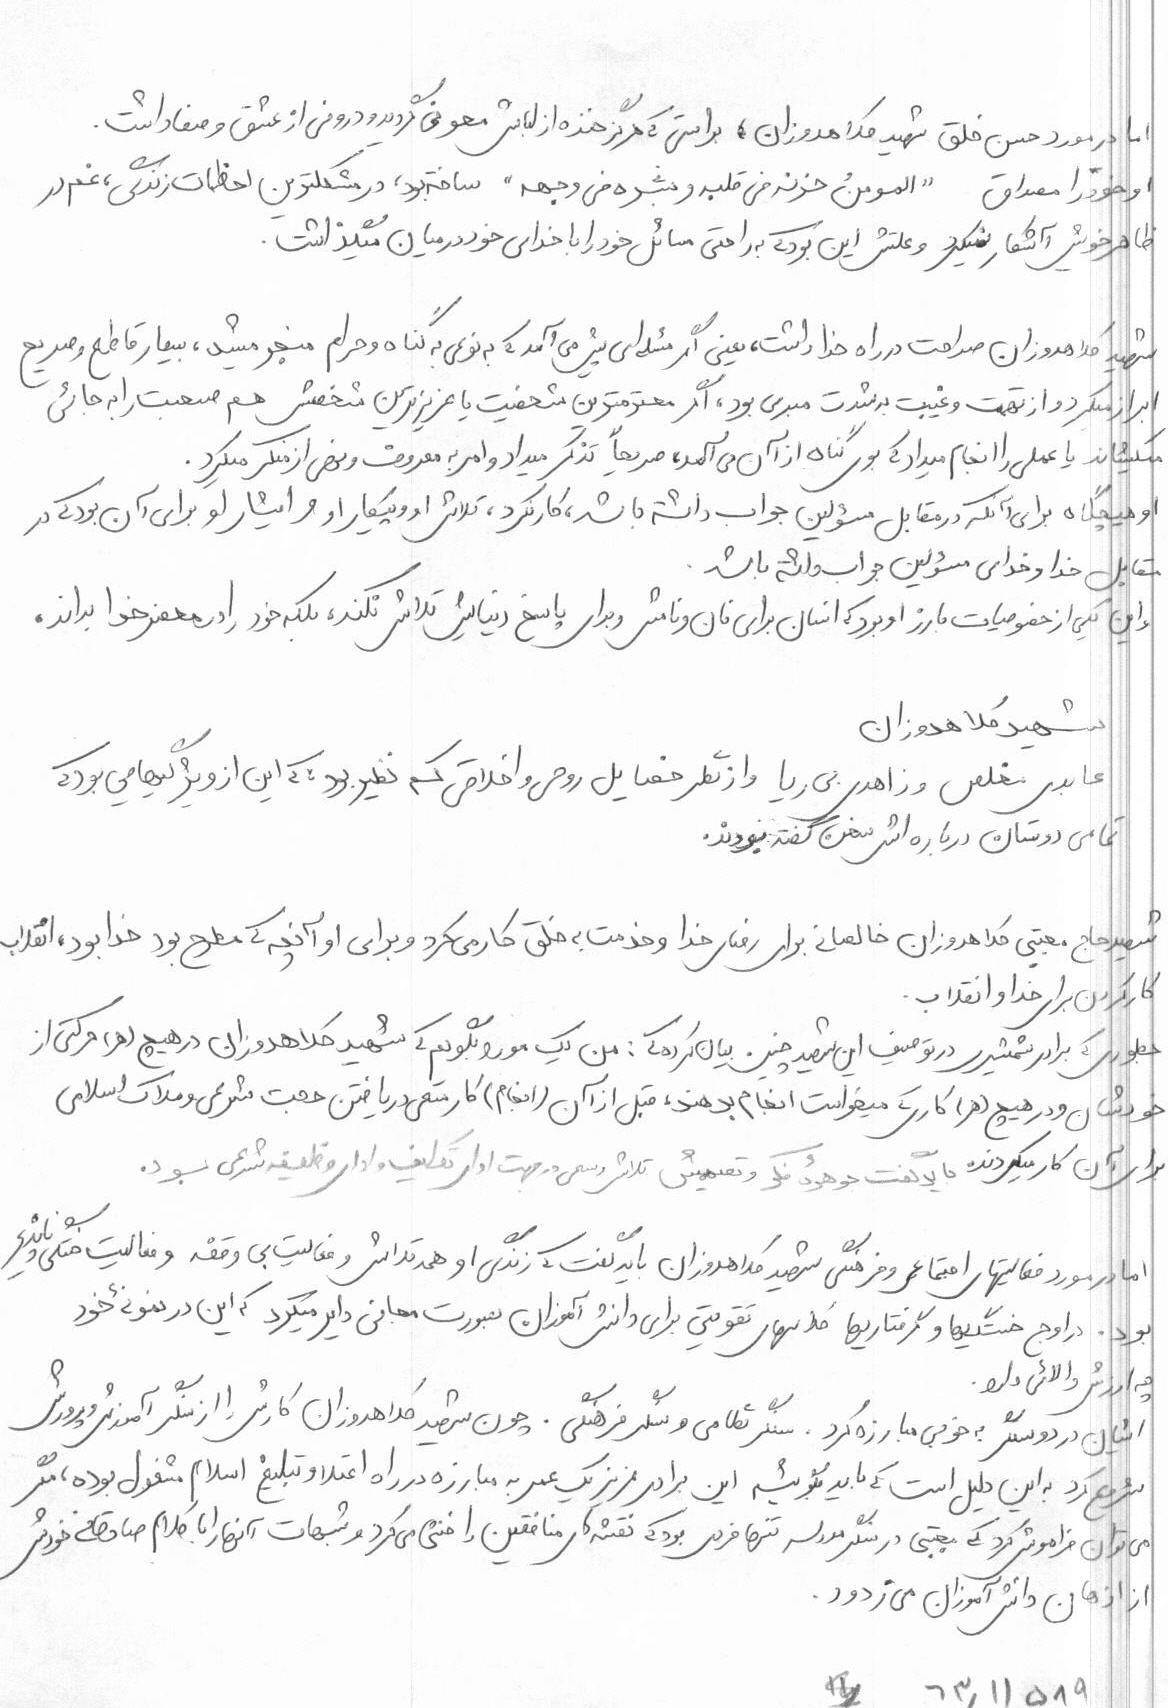 اما در مورد حسن خلق شهید کلاهدوزان ، براستی که هرگز خنده از لبانش محو نمی گردید و درونی از عشق و صفا داشت .
او خود را مصداق " المومنُ حزنه فی قلبه و بشره فی وجهه " ساخته بود ، در مشکلترین لحظات زندگی ، غم در
ظاهر خویش آشکار نمیکرد و علتش این بود که به راحتی مسائل خود را با خدای خود در میان میگذاشت .
شهید کلاهدوزان صراحت در راه خدا داشت ، یعنی اگر مسئله ای پیش می آمد که به نوعی به گناه و حرام منجر میشد ، بسیار قاطع و صریح
ابراز میکرد و از تهمت و غیبت به شدت مبری بود ، اگر محترمترین شخصیت یا عزیزترین شخصش هم صحبت را به جائی
میکشاند یا عملی را انجام میداد که بوی گناه از آن می آمد ، صریحاً تذکر میداد و امر به معروف و نهی از منکر میکرد .
او هیچگاه برای آنکه در مقابل مسئولین جواب داشته باشد ، کار نکرد ، تلاش او و پیکار او و ایثار او برای آن بود که در
مقابل خدا و خدای مسئولین جواب داشته باشد .
و این یکی از خصوصیات بارز او بود که انسان برای نان و نامش و برای پاسخ دنیائیش تلاش نکند ، بلکه خود را در محضر خدا بداند ،
شهید کلاهدوزان
عابدی مخلص و زاهدی بی ریا و از نظر خصایل روحی و اخلاقی کم نظیر بود ، که این از ویژگیهایی بود که
تمامی دوستان درباره اش سخن گفته بودند .
شهید حاج مجتبی کلاهدوزان خالصانه برای رضای خدا و خدمت به خلق کار می کرد و برای او آنچه که مطرح بود خدا بود ، انقلاب
کار کردن برای خدا و انقلاب .
بطوری که برادر شمشیری در توصیف این شهید چنین بیان کرده که : من یک مورد بگویم که شهید کلاهدوزان در هیچ (هر) حرکتی از
خودشان و در هیچ (هر) کاری که میخواست انجام بدهند ، قبل از آن (انجام) کار متقی دریافتن حجت شرعی و ملاک اسلامی
برای آن کار میگردند . باید گفت جوهره فکر و تصمیمش تلاش و سعی در جهت ادای تکلیف و ادای وظیفه شرعی بود .
اما در مورد فعالیتهای اجتماعی و فرهنگی شهید کلاهدوزان باید گفت که زندگی او همه تلاش و فعالیت بی وقفه و فعالیت خستگی ناپذیر
بود . در اوج خستگیها و گرفتاریها کلاسهای تقویتی برای دانش آموزان بصورت مجانی دایر میکرد که این در نمونهٔ خود
چه ارزش والائی دارد .
ایشان در دو سنگر به خوبی مبارزه کرد . سنگر نظامی و سنگر فرهنگی . چون شهید کلاهدوزان کارش را از سنگر آموزش و پرورش
شروع کرد به این دلیل است که باید بگوییم این برادر عزیز یک عمر به مبارزه در راه اعتلا و تبلیغ اسلام مشغول بوده ، مگر
می توان فراموش کرد که مجتبی در سنگر مدرسه تنها فردی بود که نقشه های منافقین را خنثی می کرد و شبهات آنها را با کلام صادقانه خودش
از اذهان دانش آموزان می زدود .
۶۳,۱۱۵۸۹